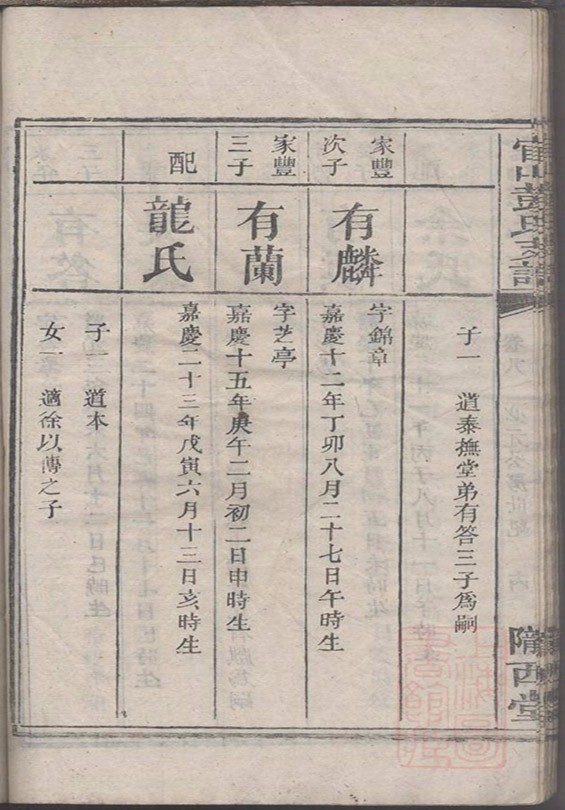 官山彭氏支譜
隴西堂
子一 道泰撫堂弟有答三子爲嗣
家豐
次子
有麟
字錦章
嘉慶十二年丁卯八月二十七日午時生
家豐
三子
有蘭
字芝亭
嘉慶十五年庚午二月初二日申時生
配
龍氏
嘉慶二十三年戊寅六月十三日亥時生
子一 道本
女一 適徐以傳之子